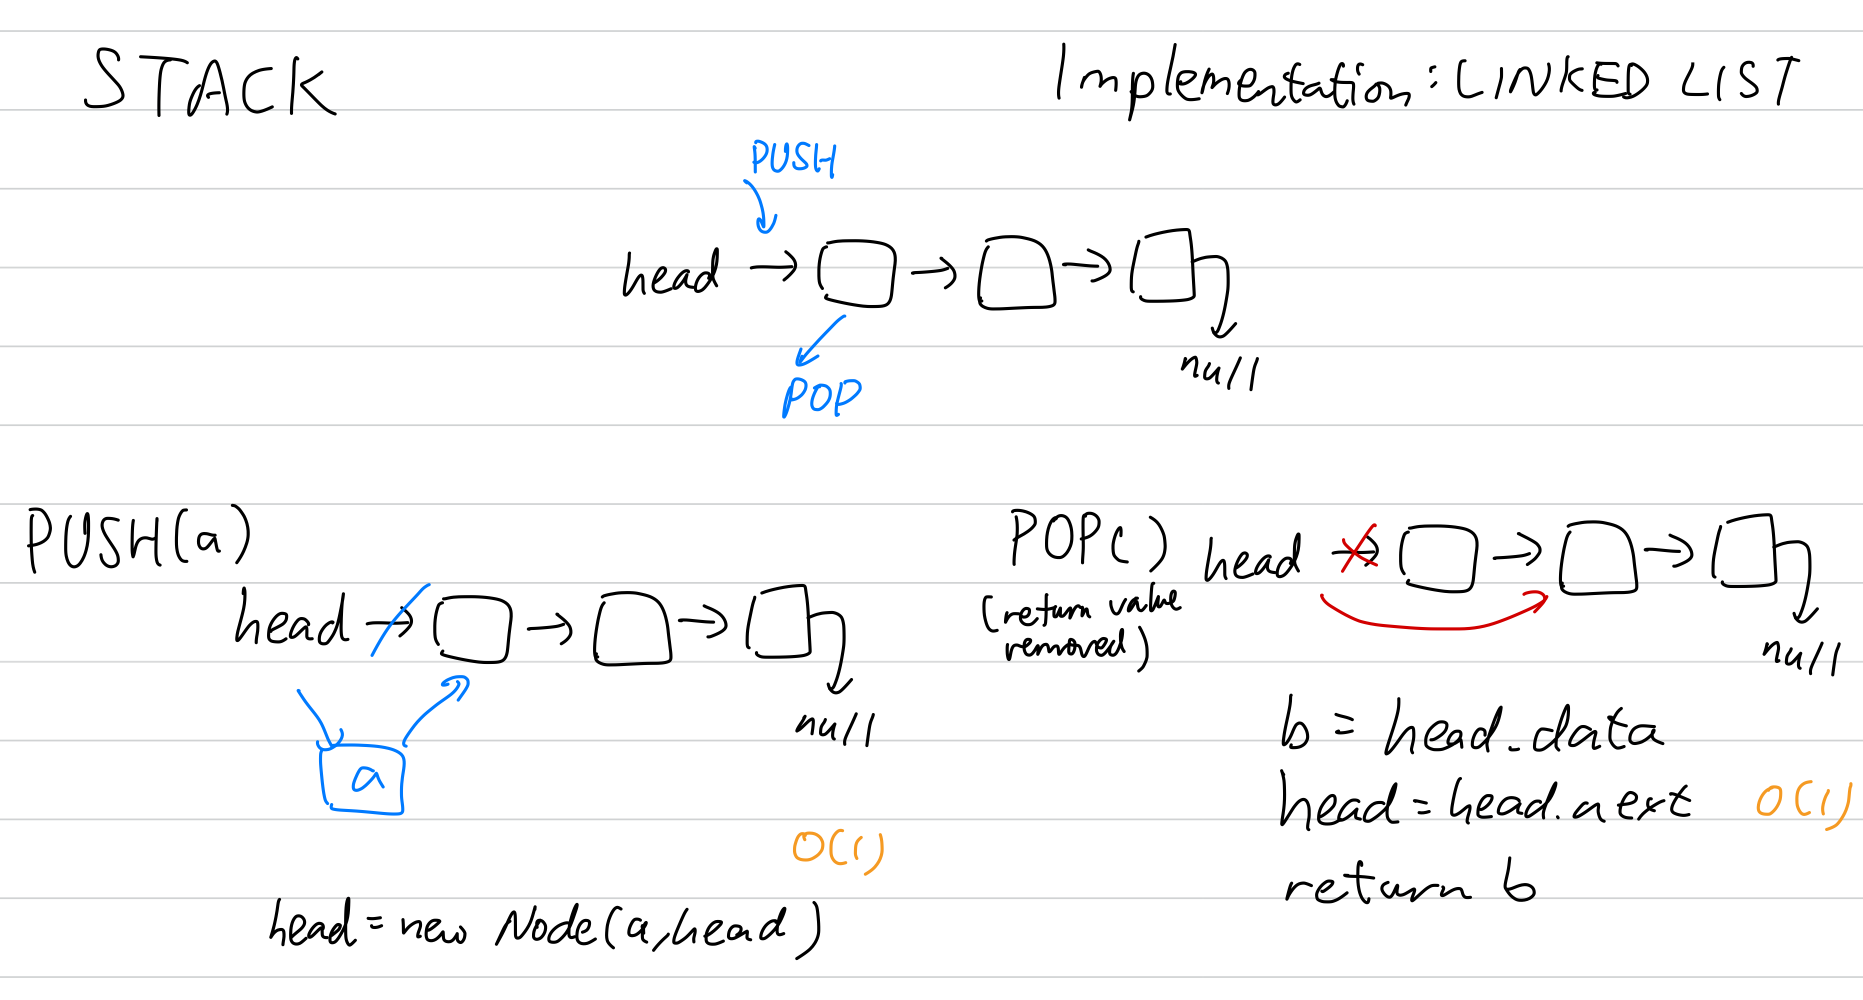 STACK
Implementation: LINKED LIST
PUSH
head
POP
null
PUSH(a)
head
null
a
O(1)
head = new Node(a, head)
POP()
(return value
removed)
head
null
b = head.data
head = head.next O(1)
return b